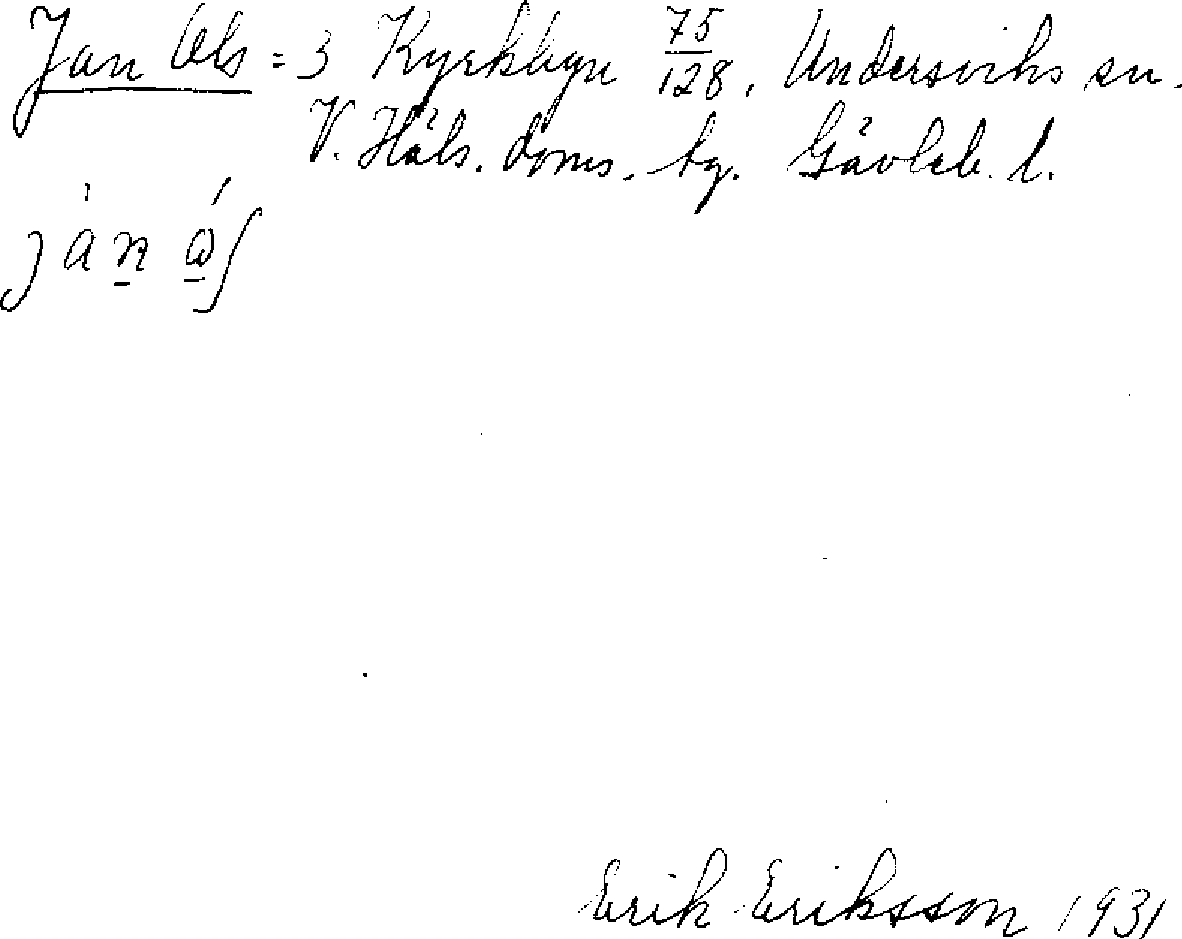 Jan Ols = 3 Kyrkbyn 75/128, Undersviks sn.
V. Häls. doms. bg. Gävleb. l.
Erik Eriksson 1931